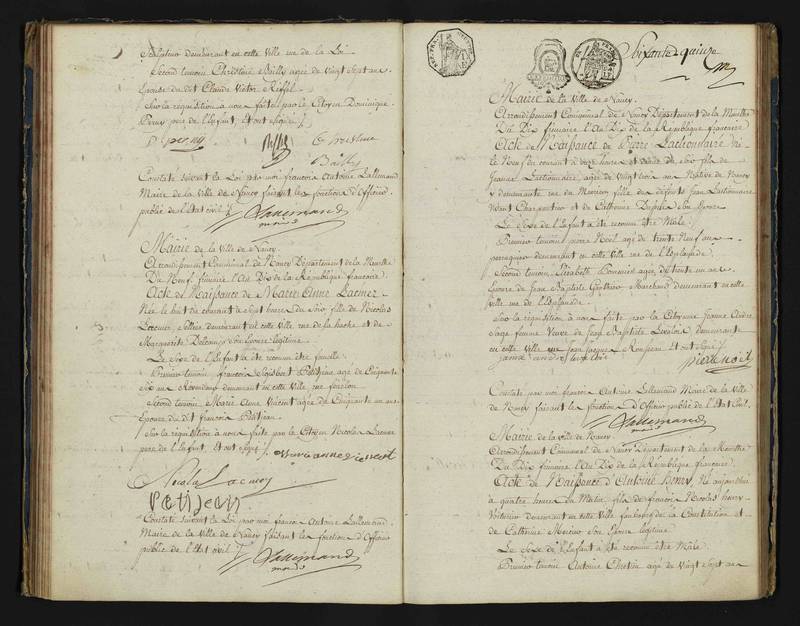 Sculpteur demeurant en cette Ville rue de la Loi
Second temoin Christine Bailly agée de Vingt Sept ans
Epouse du dit Claude Victor
Sur la réquisition à nous faite par le Citoyen Dominique
Perny pere de l'Enfant, Et ont Signé
perny
Christine
Bailly
Constaté suivant la Loi par moi françois Antoine Lallemand
Maire de la Ville de Nancy faisant les fonctions d'Officier
public de l'Etat civil
Lallemand
Mairie de la Ville de Nancy
Arrondissement Communal de Nancy Département de la Meurthe
Du Neuf frimaire l'An Dix de la République francaise
Acte de Naissance de Marie Anne Lacuier
Née le huit du courant à Sept heures du Soir fille de Nicolas
Lacuier, Sellier demeurant en cette Ville rue de la hache et de
Marguerite Son Epouse légitime.
Le Sexe de l'Enfant a été reconnu être femelle
Premier temoin françois Petitjean agé de Cinquante
Six ans demeurant en cette Ville rue
Second temoin Marie Anne Vincent agée de Cinquante un ans
Epouse du dit françois Petitjean
Sur la réquisition à nous faite par le Citoyen Nicolas Lacuier
pere de l'Enfant, Et ont Signé
marie anne vincent
Nicolas
petijean
Constaté suivant la Loi par moi francois Antoine Lallemand
Maire de la Ville de Nancy faisant les fonctions d'Officier
public de l'Etat civil
Lallemand
Soixante quinze
Mairie de la Ville de Nancy.
Arrondissement Communal de Nancy Département de la Meurthe
Du Dix frimaire l'An Dix de la République francaise
Acte de Naissance de Pierre Lactionnaire Né
le Neuf du courant à onze heures et demie du Soir fils de
Jeanne Lactionnaire, agée de Vingt trois ans Native de Nancy
y demeurante rue du fille des défunts Jean Lactionnaire
Vivant Charpentier et de Catherine Son Epouse
Le Sexe de l'Enfant a été reconnu être Mâle.
Premier temoin pierre Noël agé de trente Neuf ans
perruquier demeurant en cette Ville rue de l'Esplanade.
Second temoin Elisabeth agée de trente un ans
Epouse de Jean Baptiste Marchand demeurant en cette
Ville rue de l'Esplanade.
Sur la réquisition à nous faite par la Citoyenne Jeanne André
Sage femme Veuve de Jean Baptiste demeurante
en cette Ville rue Jean Jacques Rousseau Et ont Signé
pierre noël
Constaté par moi françois Antoine Lallemand Maire de la Ville
de Nancy faisant les fonctions d'Officier public de l'Etat Civil.
Lallemand
Mairie de la Ville de Nancy.
Arrondissement Communal de Nancy Département de la Meurthe
Du Dix frimaire l'An Dix de la République francaise.
Acte de Naissance d'Antoine henry, Né aujourd'hui
à quatre heures du Matin, fils de françois Nicolas henry
Voiturier demeurant en cette Ville faubourg de la Constitution et
de Catherine Son Epouse légitime.
Le Sexe de l'Enfant a été reconnu être Mâle
Premier temoin Antoine agé de Vingt Sept ans